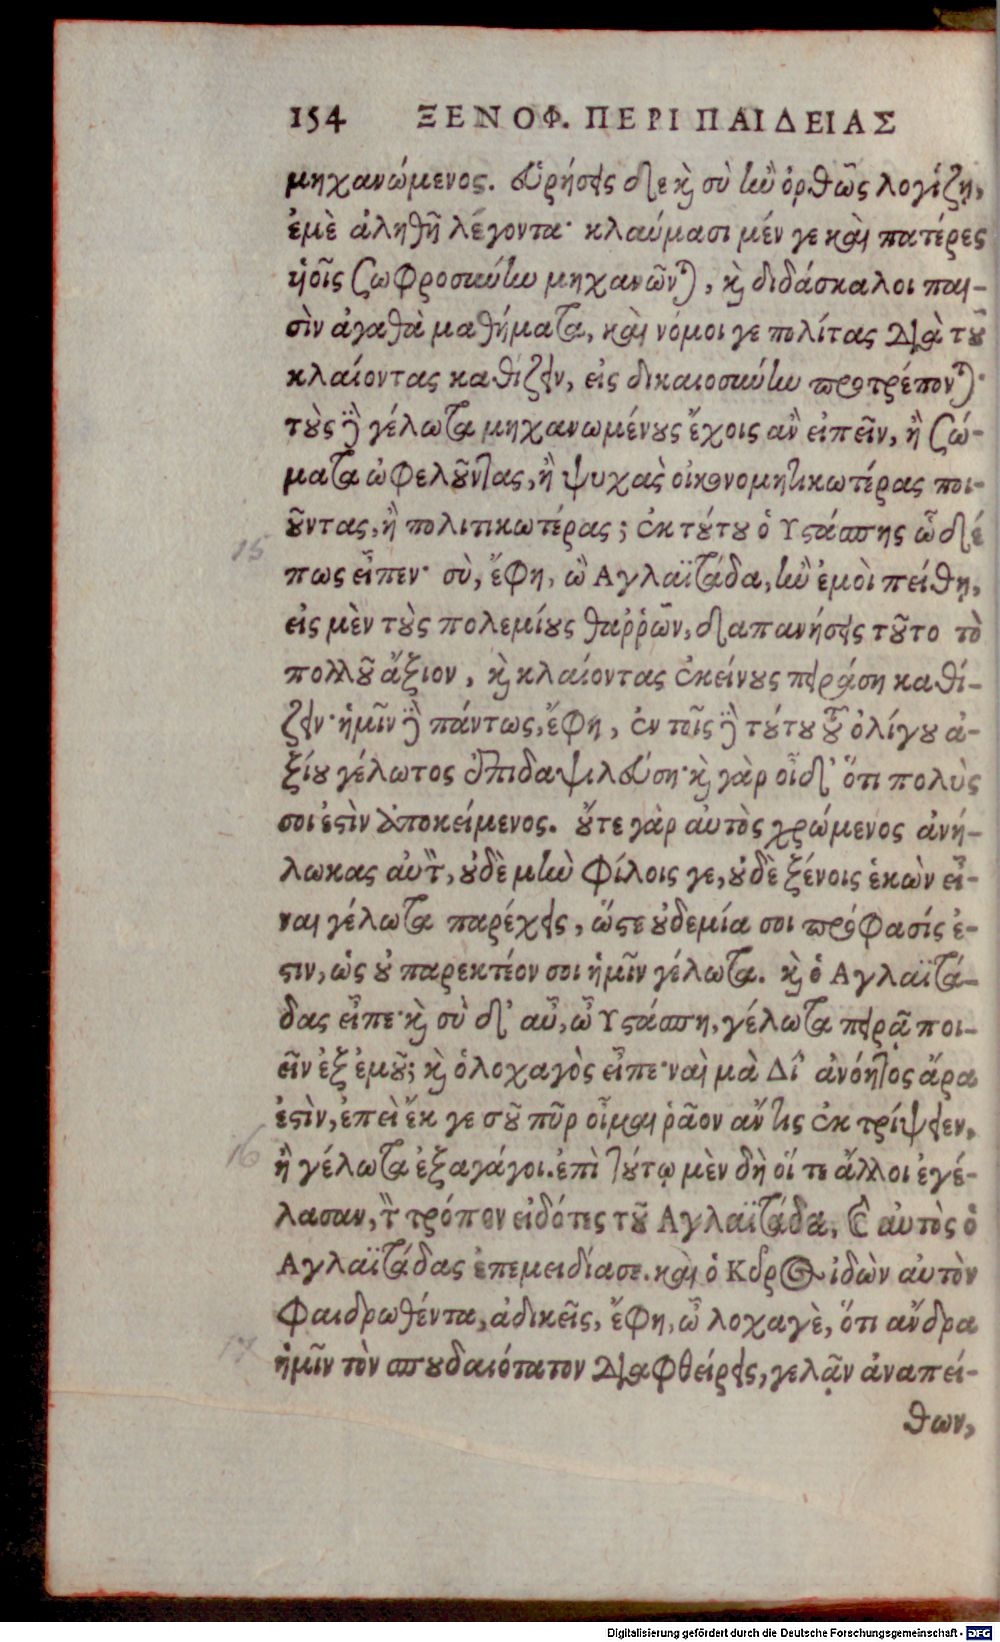 154 ΞΕΝΟΦ. ΠΕΡΙ ΠΑΙΔΕΙΑΣ
μηχανώμενος. εὑρήσεις δὲ καὶ σὺ ἢν ὀρθῶς λογίζῃ,
ἐμὲ ἀληθῆ λέγοντα· κλαύμασι μέν γε καὶ πατέρες
υἱοῖς σωφροσύνην μηχανῶνται, καὶ διδάσκαλοι παι-
σὶν ἀγαθὰ μαθήματα, καὶ νόμοι γε πολίτας διὰ τοῦ
κλαίοντας καθίζειν, εἰς δικαιοσύνην προτρέπονται·
τοὺς δὲ γέλωτα μηχανωμένους ἔχοις ἂν εἰπεῖν, ἢ σώ-
ματα ὠφελοῦντας, ἢ ψυχὰς οἰκονομητικωτέρας ποι-
οῦντας, ἢ πολιτικωτέρας; ἐκ τούτου ὁ Υστάσπης ὧδέ
πως εἶπεν· σὺ, ἔφη, ὦ Αγλαϊτάδα, ἢν ἐμοὶ πείθῃ,
εἰς μὲν τοὺς πολεμίους θαῤῥῶν, δαπανήσεις τοῦτο τὸ
πολλοῦ ἄξιον, καὶ κλαίοντας ἐκείνους πειράσῃ καθί-
ζειν· ἡμῖν δὲ πάντως, ἔφη, ἐν τοῖς δὲ τούτου τοῦ ὀλίγου ἀ-
ξίου γέλωτος ἐπιδαψιλεύσῃ· καὶ γὰρ οἶδ' ὅτι πολὺς
σοι ἐστὶν ἀποκείμενος. οὔτε γὰρ αὐτὸς χρώμενος ἀνή-
λωκας αὐτὸν, οὐδὲ μὴν φίλοις γε, οὐδὲ ξένοις ἑκὼν εἶ-
ναι γέλωτα παρέχεις, ὥστε οὐδεμία σοι πρόφασίς ἐ-
στιν, ὡς οὐ παρεκτέον σοι ἡμῖν γέλωτα. καὶ ὁ Αγλαϊτά-
δας εἶπε· καὶ σὺ δ' αὖ, ὦ Υστάσπη, γέλωτα πειρᾷ ποι-
εῖν ἐξ ἐμοῦ; καὶ ὁ λοχαγὸς εἶπε· ναὶ μὰ Δί' ἀνόητος ἄρα
ἐστὶν, ἐπεὶ ἔκ γε σοῦ πῦρ οἶμαι ῥᾶον ἄν τις ἐκτρίψειεν,
ἢ γέλωτα ἐξαγάγοι. ἐπὶ τούτῳ μὲν δὴ οἵ τε ἄλλοι ἐγέ-
λασαν, τὸν τρόπον εἰδότες τοῦ Αγλαϊτάδα, καὶ αὐτὸς ὁ
Αγλαϊτάδας ἐπεμειδίασε. καὶ ὁ Κῦρος ἰδὼν αὐτὸν
φαιδρωθέντα, ἀδικεῖς, ἔφη, ὦ λοχαγὲ, ὅτι ἄνδρα
ἡμῖν τὸν σπουδαιότατον διαφθείρεις, γελᾷν ἀναπεί-
θων,
15
16
17
Digitalisierung gefördert durch die Deutsche Forschungsgemeinschaft - DFG